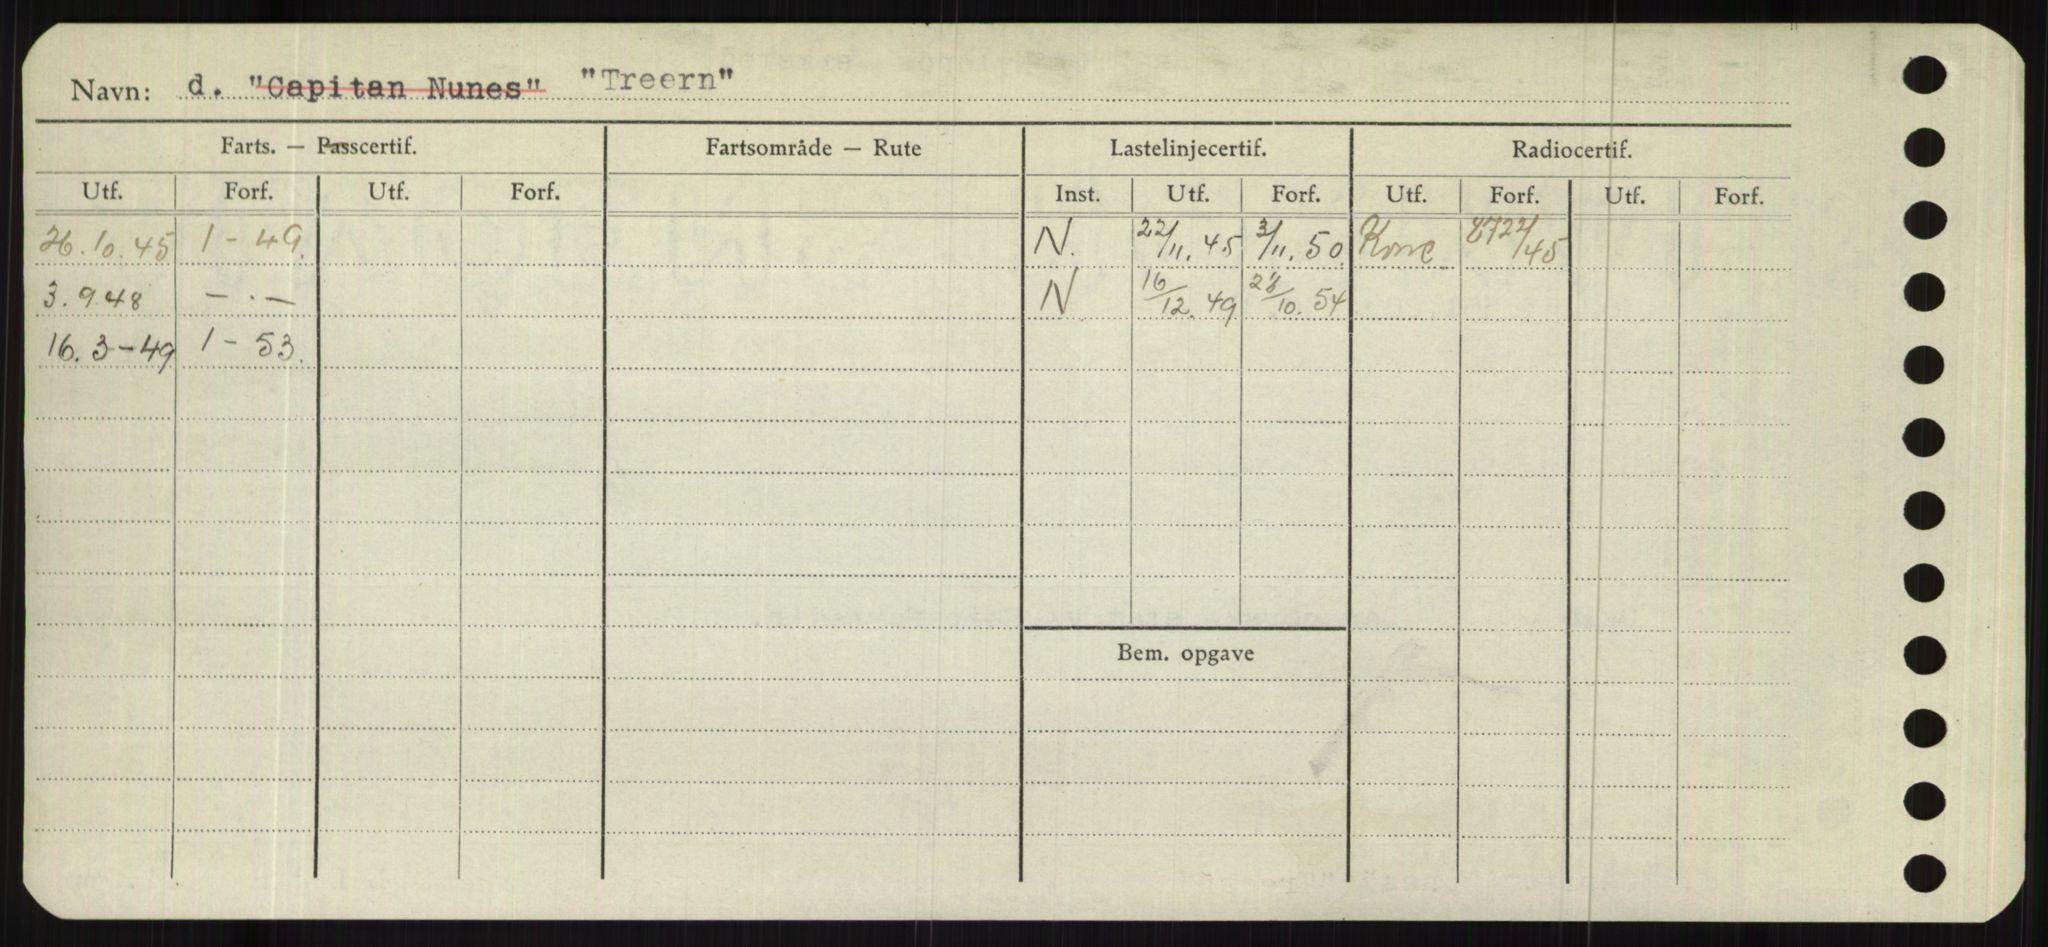 Navn: d. "Capitan Nunes" "Treern"
Farts. — Passcertif. Fartsområde — Rute Lastelinjecertif. Radiocertif.
Utf. Forf. Utf. Forf. Inst. Utf. Forf. Utf. Forf. Utf. Forf.
26.10.45 1 - 49. N. 22/11.45 3/11.50 8722/45
3.9.48 — . — N 16/12.49 28/10.54
16.3-49 1 - 53.
Bem. opgave